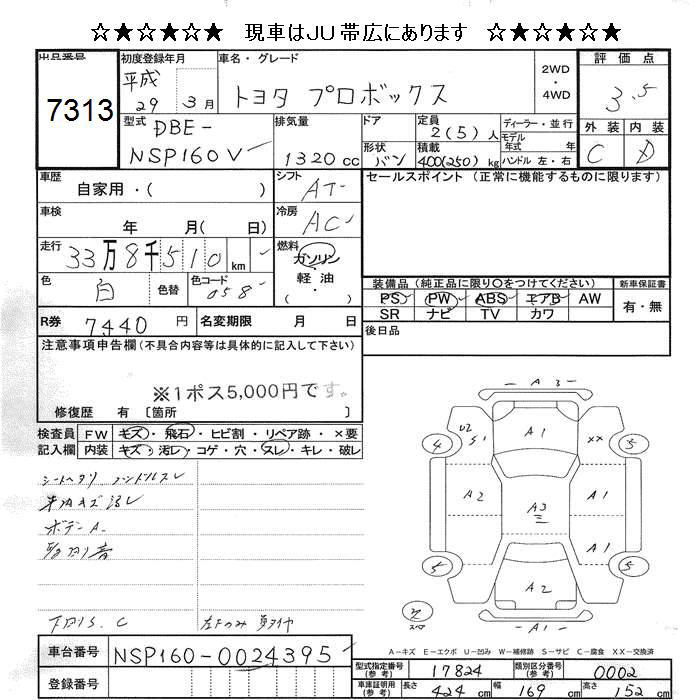 ☆★☆★☆ 現車はJU帯広にあります ☆★☆★☆
出品番号 初度登録年月 車名・グレード 2WD・4WD 評価点
7313 平成 29 3月 トヨタ プロボックス 3.5
型式 DBE-NSP160V 排気量 1320cc ドア 定員 2(5)人 ディーラー・並行 外装 内装
形状 バン 積載 400(250)kg モデル年式 年 ハンドル 左・右 C D
車歴 自家用・( ) シフト AT セールスポイント(正常に機能するものに限ります)
車検 年 月( 日) 冷房 AC
走行 33万8千510km 燃料 ガソリン・軽油・
色 白 色替 色コード 058 装備品(純正品に限り○をつけてください) 新車保証書
PS PW ABS エアB AW 有・無
R券 7440円 名変期限 月 日 SR ナビ TV カワ
注意事項申告欄(不具合内容等は具体的に記入して下さい) 後日品
※1ポス5,000円です。
修復歴 有〔箇所
検査員 FW キズ・飛石・ヒビ割・リペア跡・×要
記入欄 内装 キズ・汚レ・コゲ・穴・スレ・キレ・破レ
シートヘタリ ハンドルスレ
ボデーA
下廻りS.C
A3
A1
S1
XX
4
5
A2
A3
A1
A1
5
5
A2
スペア
A1
A-キズ E-エクボ U-凹み W-補修跡 S-サビ C-腐食 XX-交換済
車台番号 NSP160-0024395
登録番号
型式指定番号(参考) 17824 類別区分番号(参考) 0002
車庫証明用(参考) 長さ 424cm 幅 169cm 高さ 152cm